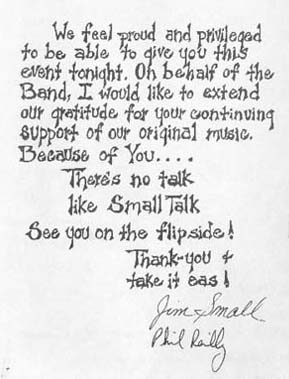 We feel proud and privileged
to be able to give you this
event tonight. On behalf of the
Band, I would like to extend
our gratitude for your continuing
support of our original music.
Because of You....
There's no talk
like Small Talk
See you on the flipside!
Thank-you &
take it eas!
Jim Small
Phil Reilly